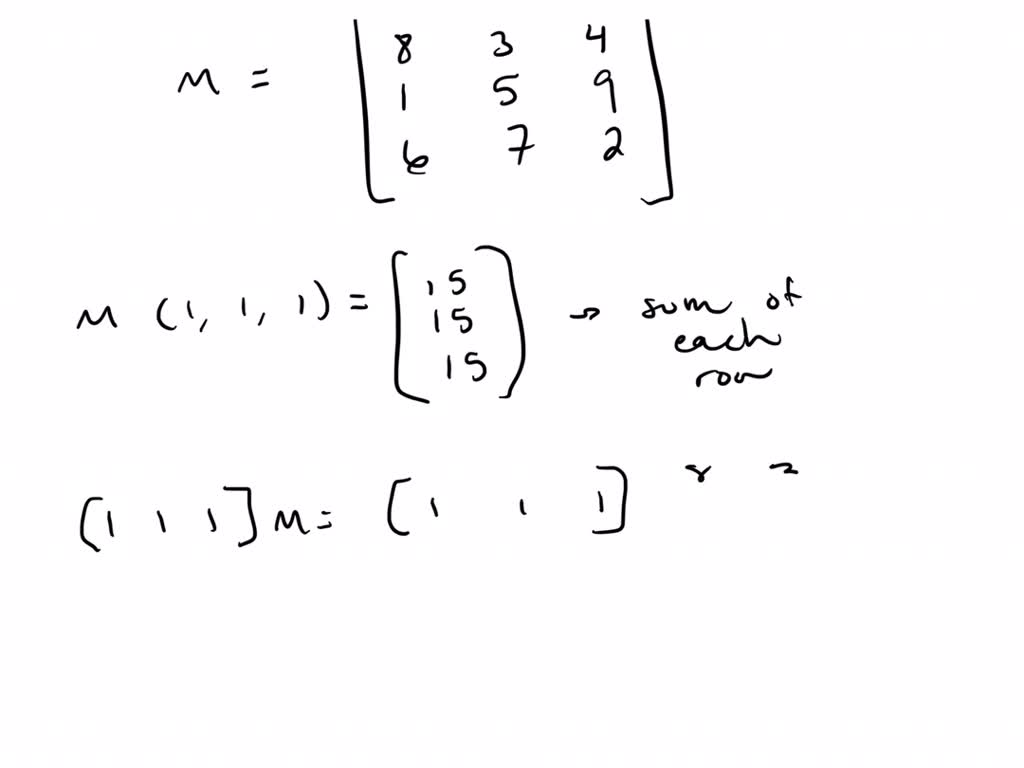 M = [8 3 4
1 5 9
6 7 2]
M (1, 1, 1) = [15
15
15] → sum of
each
row
[1 1 1] M = [1 1 1] 8 3